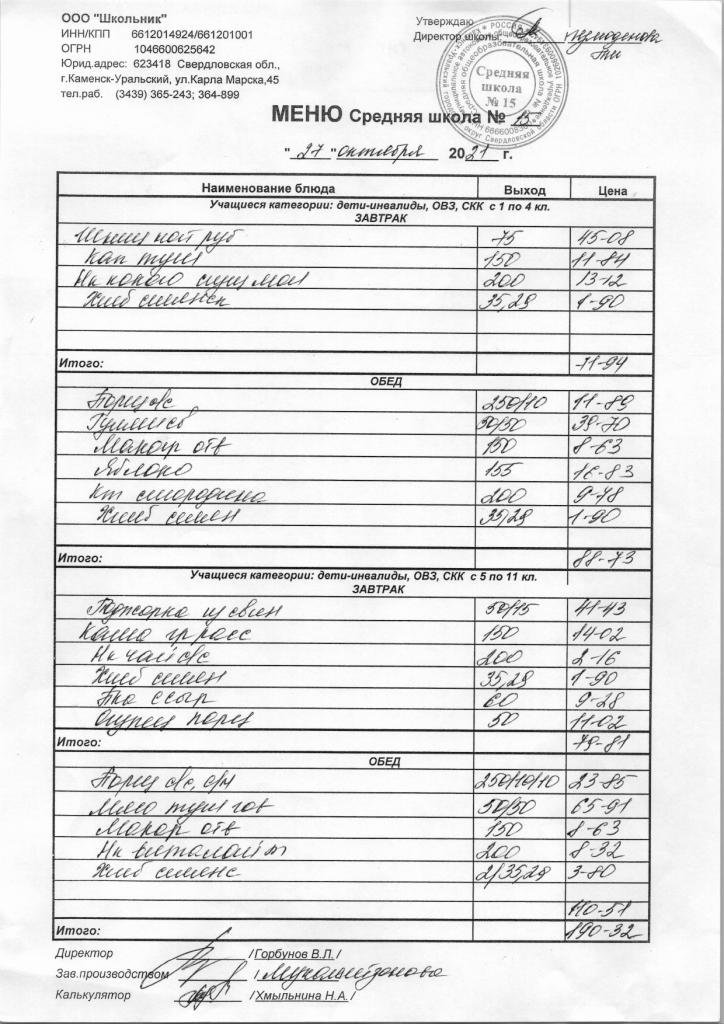 ООО "Школьник"
ИНН/КПП 6612014924/661201001
ОГРН 1046600625642
Юрид.адрес: 623418 Свердловская обл.,
г.Каменск-Уральский, ул.Карла Марска,45
тел.раб. (3439) 365-243; 364-899
Утверждаю
Директор школы:
Средняя
школа
№ 15
МЕНЮ Средняя школа № 15
"27" октября 2021 г.
Наименование блюда Выход Цена
Учащиеся категории: дети-инвалиды, ОВЗ, СКК с 1 по 4 кл.
ЗАВТРАК
руб 75 45-08
Кап туш 150 11-84
Нк какао 200 13-12
Хлеб 35,29 1-90
Итого: 71-94
ОБЕД
Борщ 250/10 11-89
Гуляш 50/50 39-70
Макар отв 150 8-63
Яблоко 155 16-83
Кт смородина 200 9-78
Хлеб 35,29 1-90
Итого: 88-73
Учащиеся категории: дети-инвалиды, ОВЗ, СКК с 5 по 11 кл.
ЗАВТРАК
Поджарка из свин 50/15 41-43
Каша гр расс 150 14-02
Нк чай 200 2-16
Хлеб 35,29 1-90
60 9-28
Огурец 50 11-02
Итого: 79-81
ОБЕД
Борщ 250/10/10 23-85
Мясо туш гов 50/50 65-91
Макар отв 150 8-63
Нк витолайт 200 8-32
Хлеб 2/35,29 3-80
110-51
Итого: 190-32
Директор / Горбунов В.Л. /
Зав.производством /
Калькулятор / Хмыльнина Н.А. /